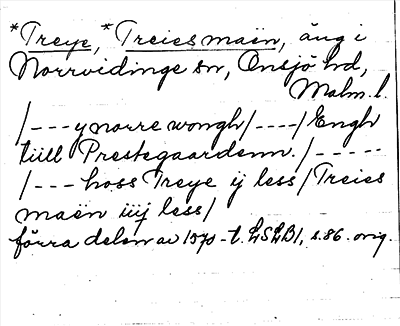 *Treye, *Treies maën, äng i
Norrvidinge sn, Onsjö hd,
Malm. l.
/---y norre wongh/----/Engh
tiill Prestegaardenn. /-----
/--- hoss Treye ij less/Treies
maën iiij less/
förra delen av 1570-t. LSLB1, s. 86. orig.